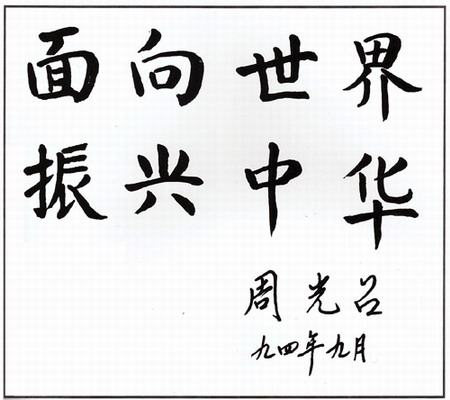 面向世界
振兴中华
周光召
九四年九月